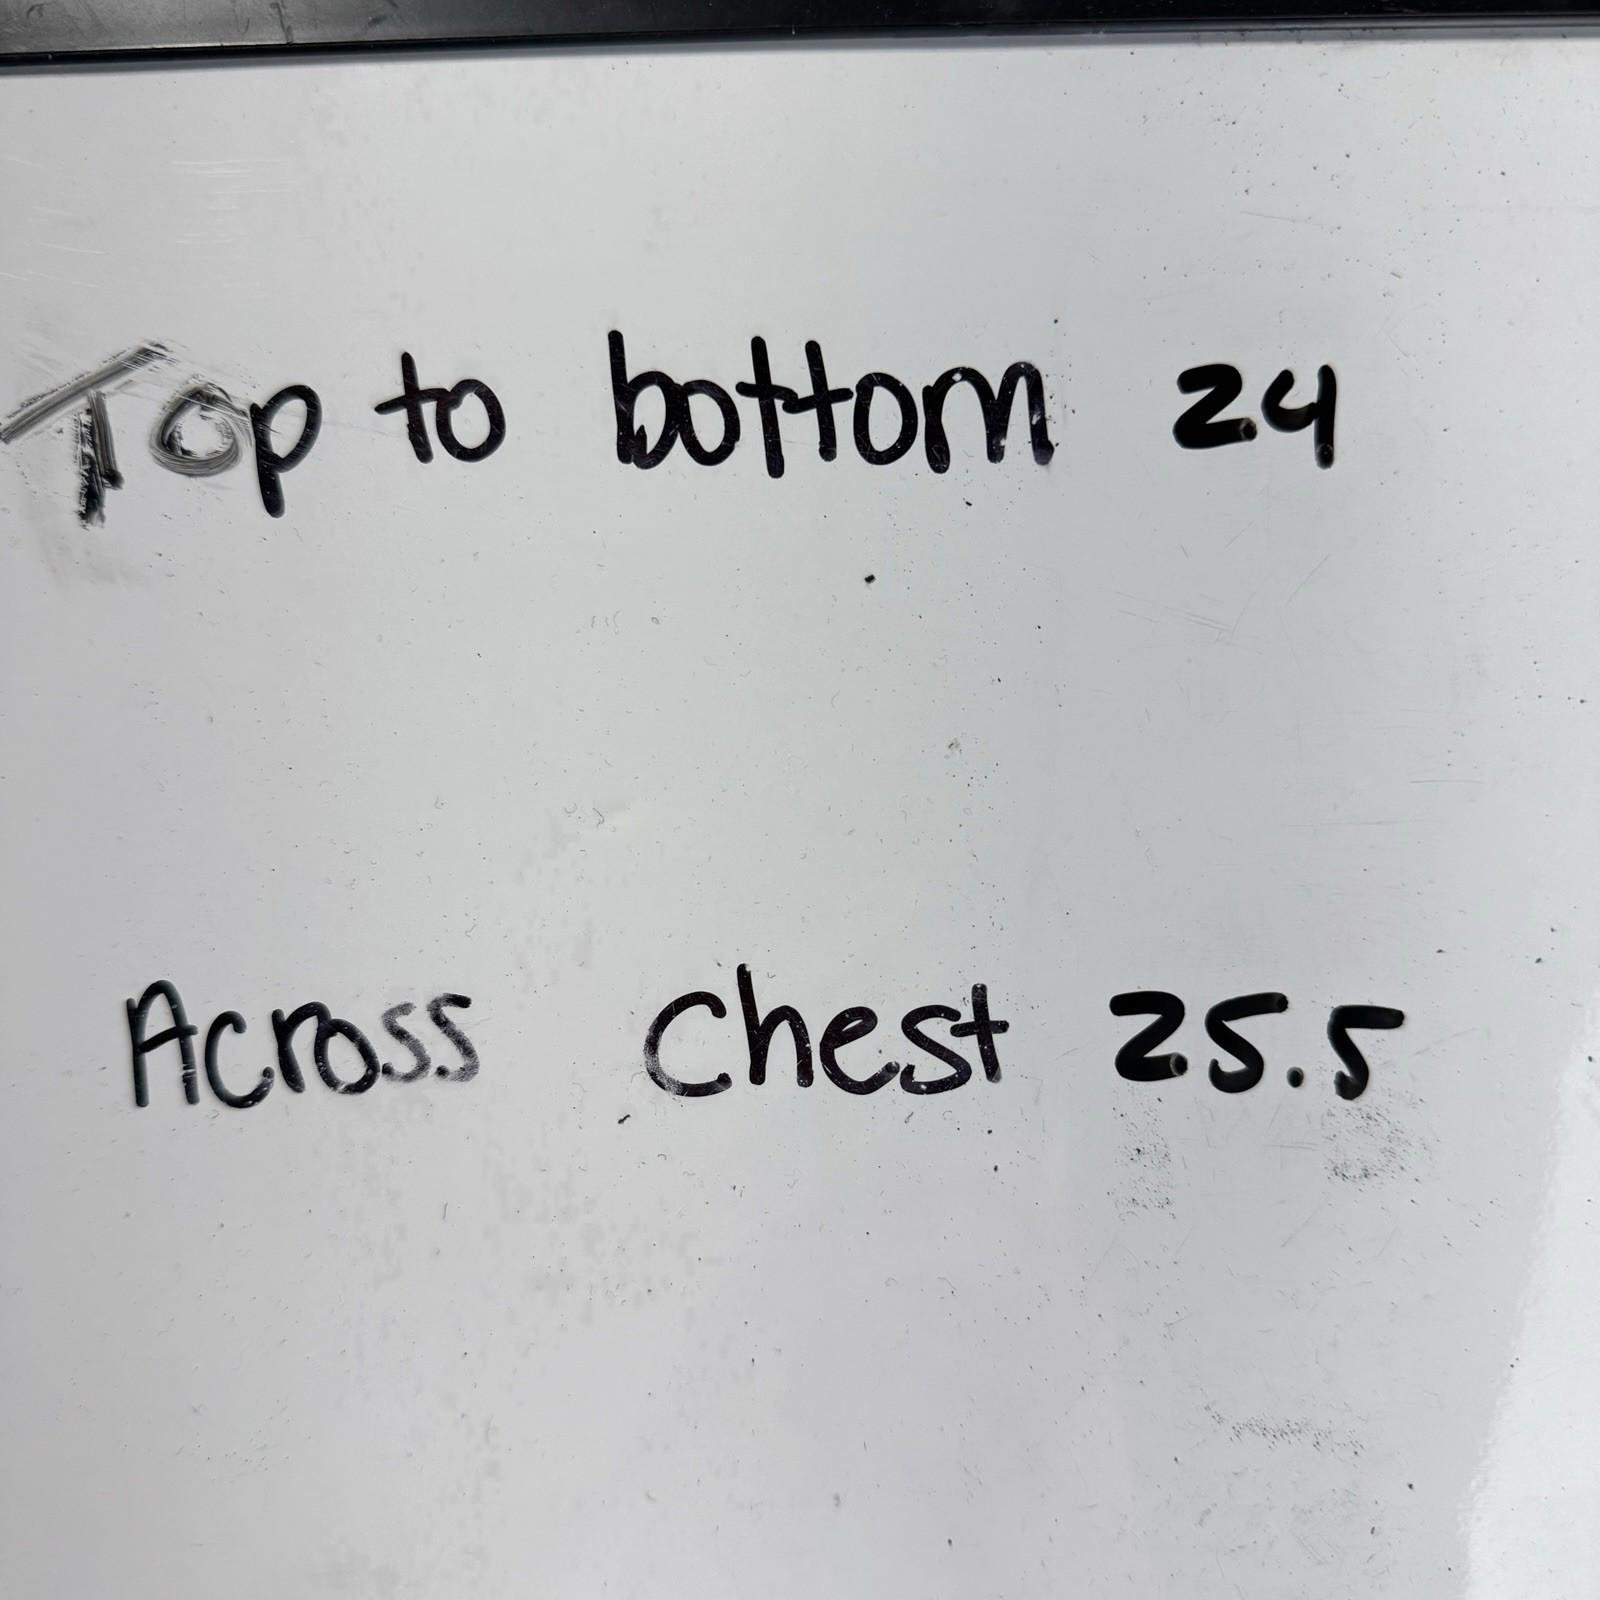 Top to bottom 24
Across Chest 25.5